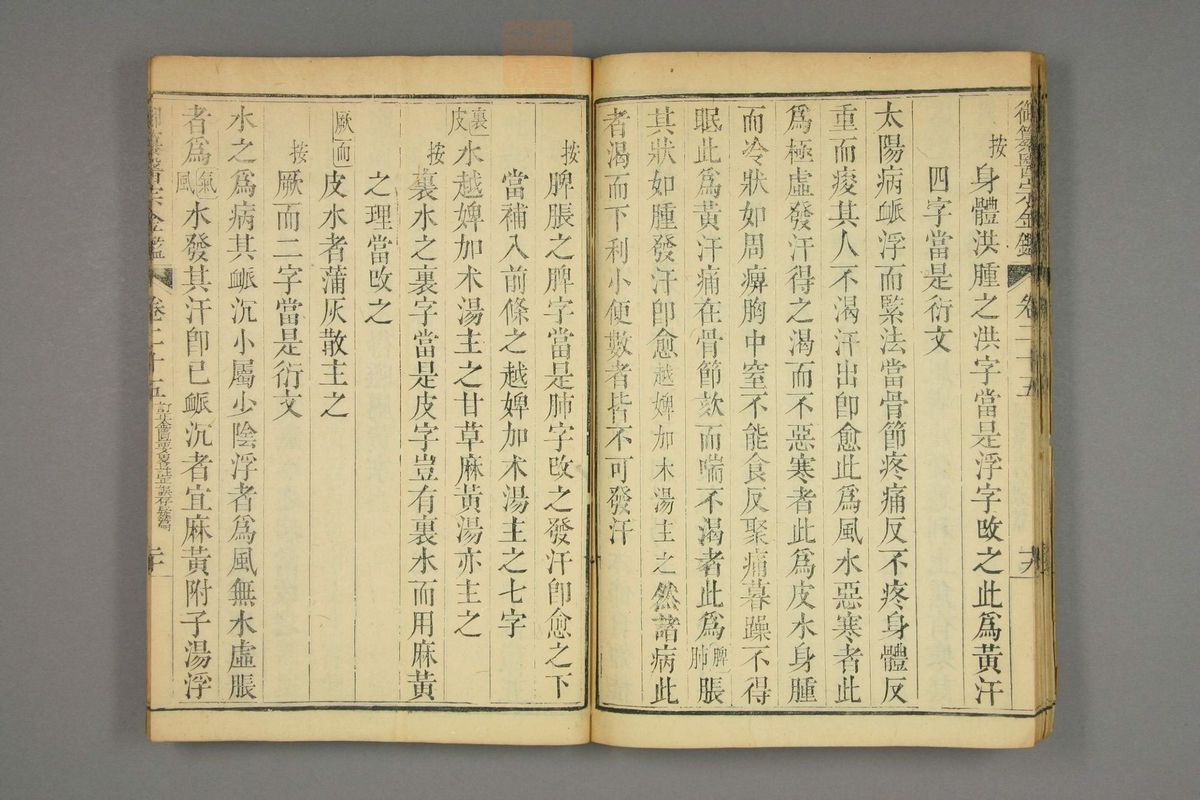 御纂醫宗金鑑 卷二十五 十九
按身體洪腫之洪字當是浮字改之此為黃汗
四字當是衍文
太陽病脈浮而緊法當骨節疼痛反不疼身體反
重而痠其人不渴汗出卽愈此為風水惡寒者此
為極虛發汗得之渴而不惡寒者此為皮水身腫
而冷狀如周痹胸中窒不能食反聚痛暮躁不得
眠此為黃汗痛在骨節欬而喘不渴者此為脾肺脹
其狀如腫發汗卽愈越婢加朮湯主之然諸病此
者渴而下利小便數者皆不可發汗
按脾脹之脾字當是肺字改之發汗卽愈之下
當補入前條之越婢加朮湯主之七字
裏皮水越婢加朮湯主之甘草麻黃湯亦主之
按裏水之裏字當是皮字豈有裏水而用麻黃
之理當改之
厥而皮水者蒲灰散主之
按厥而二字當是衍文
水之為病其脈沉小屬少陰浮者為風無水虛脹
者為氣風水發其汗卽已脈沉者宜麻黃附子湯浮
御纂醫宗金鑑 卷二十五 二十